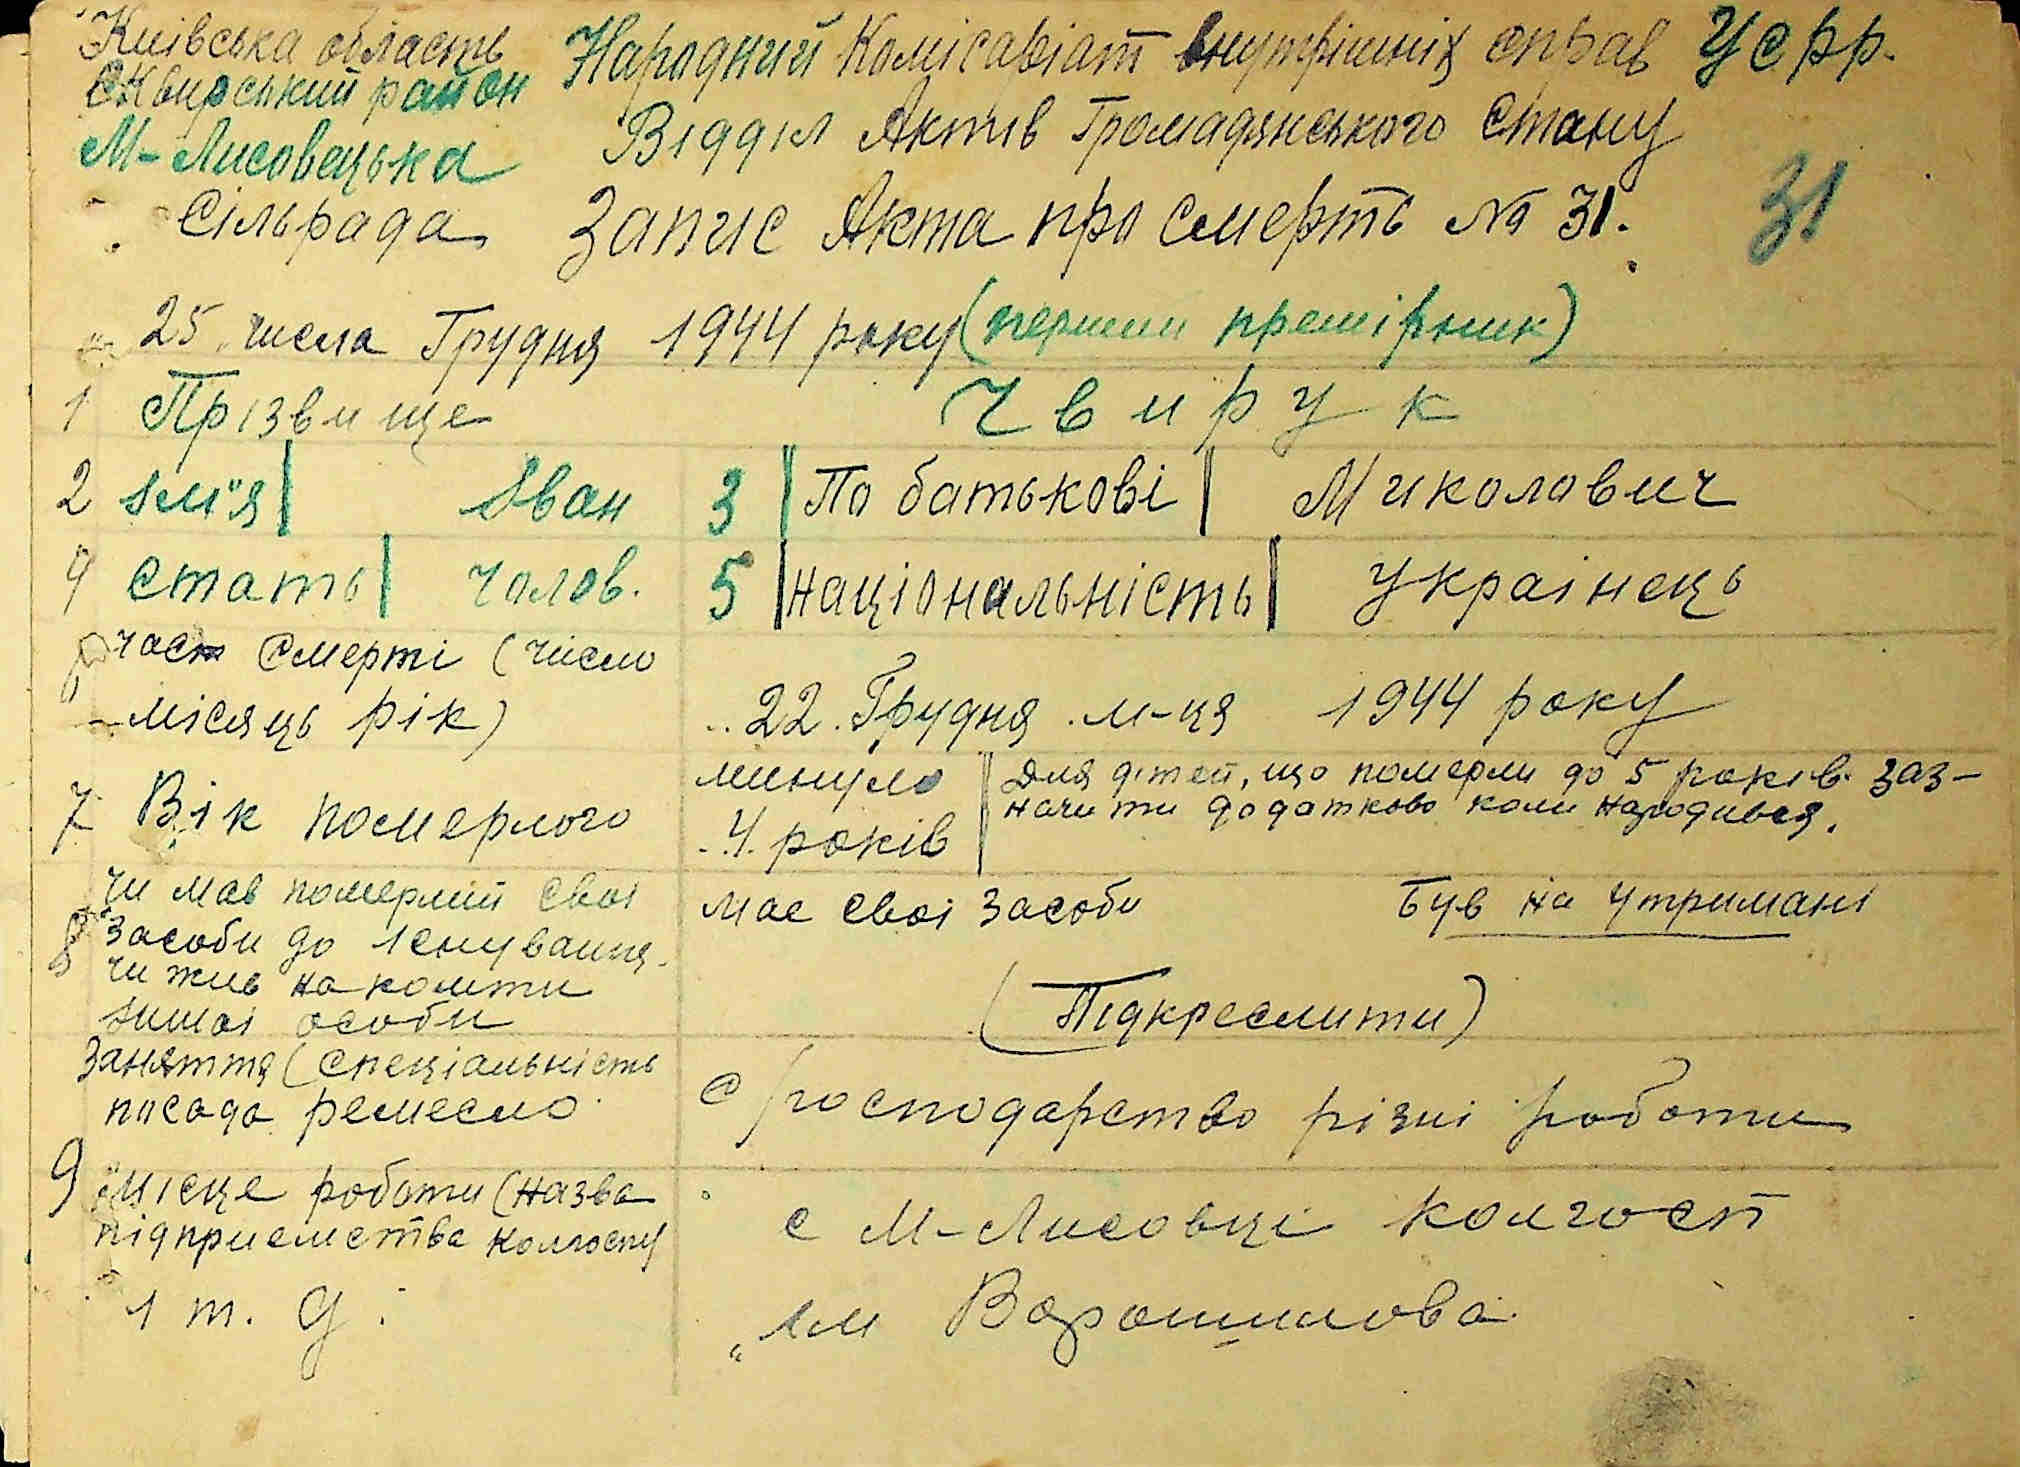 Київська область
Сквирський район
М-Лисовецька
Сільрада
Народний Комісаріат внутрішніх справ УСРР.
Відділ Актів Громадянського Стану
Запис Акта про смерть № 31.
31
25 числа Грудня 1944 року (перший премірник)
1 Прізвище Чвирук
2 Ім"я Іван 3 По батькові Миколович
4 Стать Чолов. 5 Національність Українець
Част Смерті (число
місяць рік)
22 Грудня м-ця 1944 року
7 Вік померлого
минуло
4 років
Для дітей, що померли до 5 років заз-
начити додатково коли народився.
8 Чи мав померлий свої
засоби до існування
чи жив на кошти
іншої особи
Має свої засоби Був на утримані
(Підкреслити)
Заняття (спеціальність
посада ремесло
с/господарство різні роботи
9 Місце роботи (назва
підприємства колгоспу
і т. д.
с М-Лисовці колгосп
ім Ворошилова